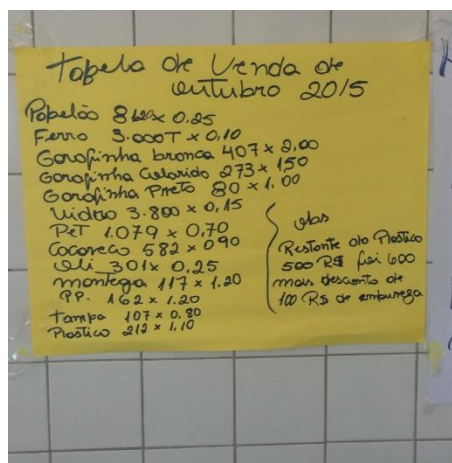 Tabela de Venda de
outubro 2015
Papelão 8.620 x 0,25
Ferro 3.000T x 0,10
Garafinha branca 407 x 2,00
Garafinha Colorido 273 x 1,50
Garafinha Preto 80 x 1,00
Vidro 3.800 x 0,15
PET 1.079 x 0,70
Cacareco 582 x 0,90
Oli 301 x 0,25
mantega 117 x 1.20
PP. 162 x 1.20
Tampa 107 x 0,80
Plastico 212 x 1,10
obs
Restante do Plastico
500 R$ foi 600
mais desconto de
100 R$ de